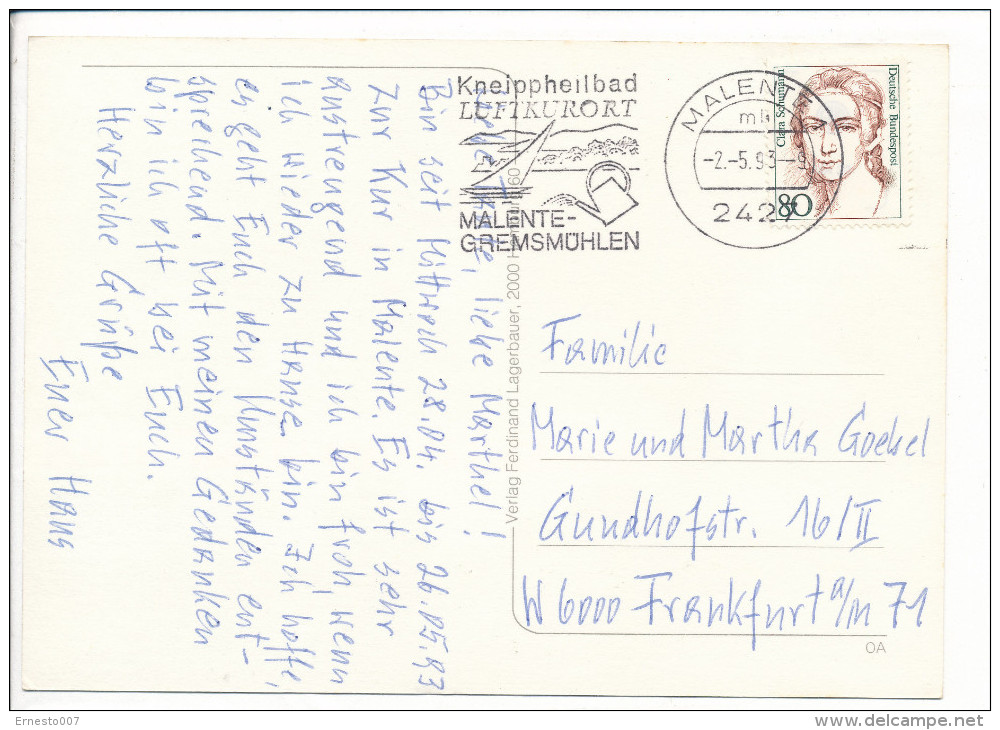 Kneippheilbad
LUFTKURORT
MALENTE-
GREMSMÜHLEN
MALENTE
mh
-2.-5.93-9
2427
Clara Schumann
Deutsche Bundespost
80
liebe Marthel!
Bin seit Mittwoch 28.04. bis 26.05.93
zur Kur in Malente. Es ist sehr
anstrengend und ich bin froh, wenn
ich wieder zu Hause bin. Ich hoffe,
es geht Euch den Umständen ent-
sprechend. Mit meinen Gedanken
bin ich oft bei Euch.
Herzliche Grüße
Euer Hans
Verlag Ferdinand Lagerbauer, 2000 60
Familie
Marie und Martha Goebel
Gundhofstr. 16/II
W 6000 Frankfurt a/M 71
OA
Ernesto007
delcampe.net